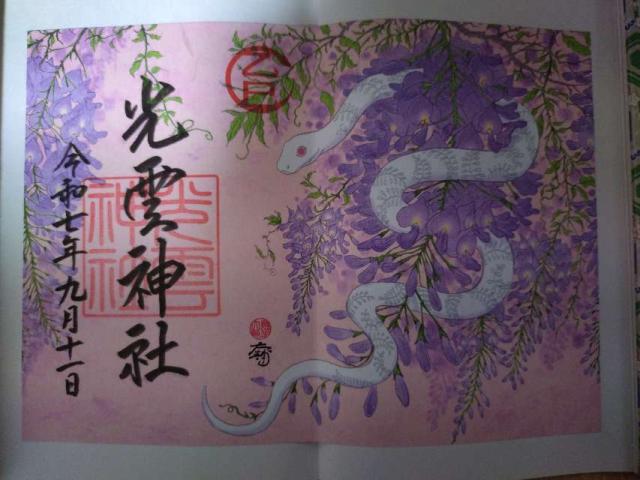 光雲神社
令和七年九月十一日
光雲
神社